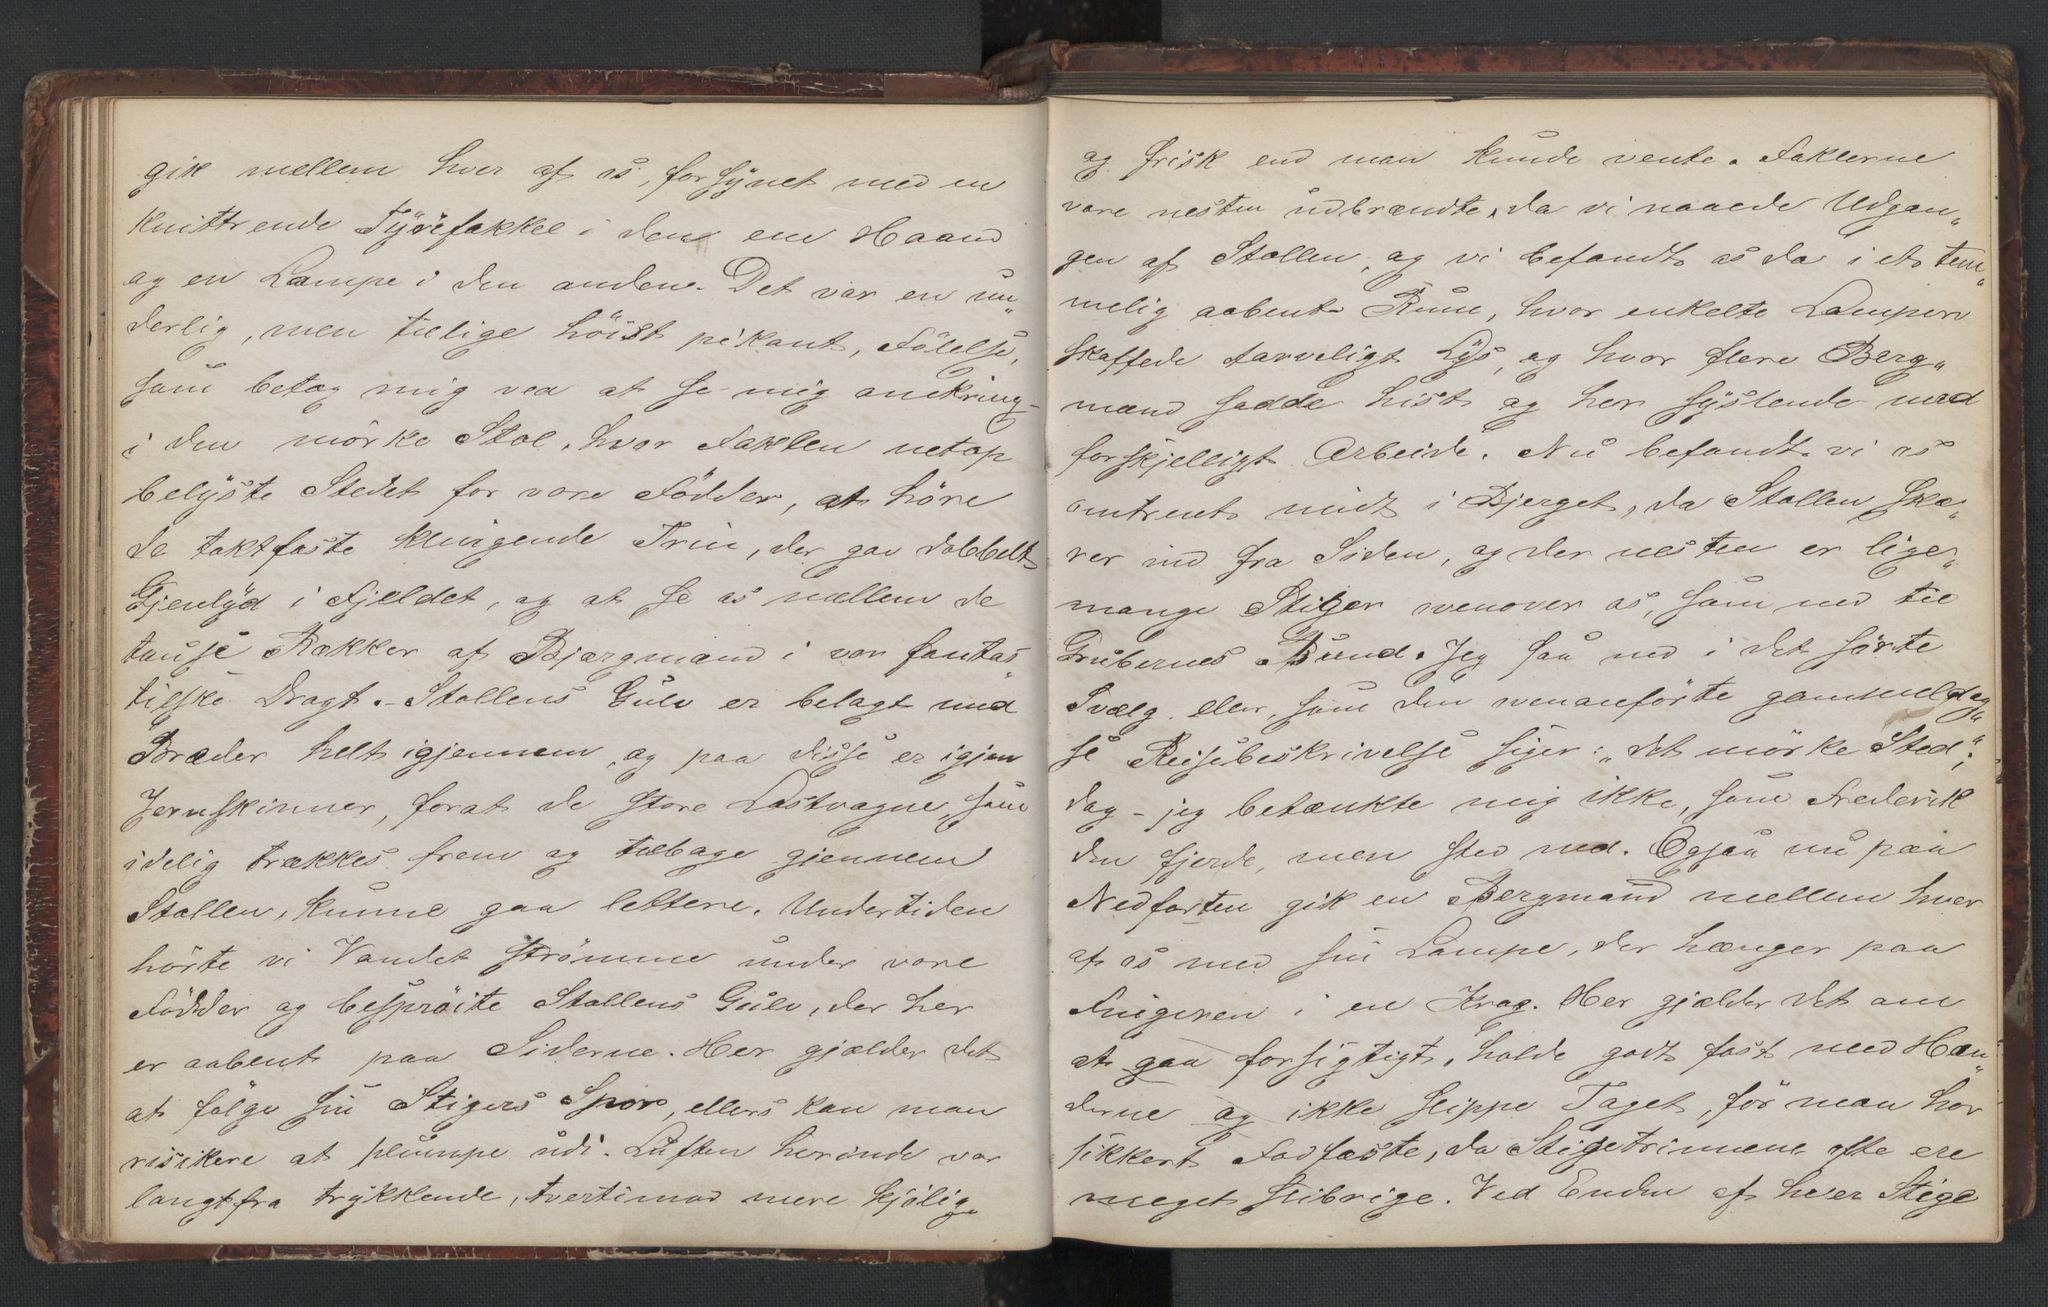 gik mellem hver af os, forsynet med en
knittrende Tyrifakkel i den ene Haand
og en Lampe i den anden. Det var en un„
derlig, men tillige höist pikant, Fölelse,
som betog mig ved at se mig omkring
i den mörke Stol, hvor Faklen netop
belyste Stedet for vore Födder, at höre
de taktfaste klingende Trin, der gav dobbelt
Gjenlyd i Fjeldet, og at se os mellem de
tause Rækker af Bjærgmænd i vor fantas„
tiske Dragt. Stollens Gulv er belagt med
Bræder helt igjennem, og paa disse er igjen
Jernskinner, forat de store Lastvogne, som
idelig trækkes frem og tilbage gjennem
Stollen, kunne gaa lettere. Undertiden
hörte vi Vandet strömme under vore
Födder og bespröite Stollens Gulv, der her
er aabent paa Siderne. Her gjælder det
at fölge sin Stigers Spor, ellers kan man
risikere at plumpe udi. Luften herinde var
langtfra trykkende, tvertimod mere kjölig
og frisk end man kunde vente. Faklerne
vare nesten udbrændte, da vi naaede Udgan„
gen af Stollen, og vi befandt os da i et tem„
melig aabent Rum, hvor enkelte Lamper
skaffede tarveligt Lys, og hvor flere Berg„
mænd sadde hist og her syslende med
forskjelligt Arbeide. Nu befandt vi os
omtrent midt i Bjerget, da Stollen skæ„
rer ind fra Siden, og der nesten er lige„
mange Stiger ovenover os, som ned til
Grubernes Bund. Jeg saa ned i det sorte
Svælg eller, som den ovenanförte gammeldag„
se Reisebeskrivelse siger: „det mörke Sted“;
dog – jeg betænkte mig ikke, som Frederik
den fjerde, men steg ned. Ogsaa nu paa
Nedfarten gik en Bergmand mellem hver
af os med sin Lampe, der hænger paa
Fingeren i en Krog. Her gjælder det om
at gaa forsigtigt, holde godt fast med Hæn„
derne og ikke slippe Taget, för man har
sikkert Fodfæste, da Stigetrinnene ofte ere
meget slibrige. Ved Enden af hver Stige